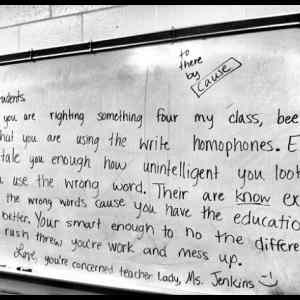 to
there
by
cause
udents,
you are righting something four my class, bee
hat you are using the write homophones. E
tale you enough how unintelligent you loo
u use the wrong word. Their are know ex
the wrong words cause you have the educatio
better. Your smart enough to no the differe
rush threw you're work and mess up.
Love, you're concerned teacher lady, Ms. Jenkins :)